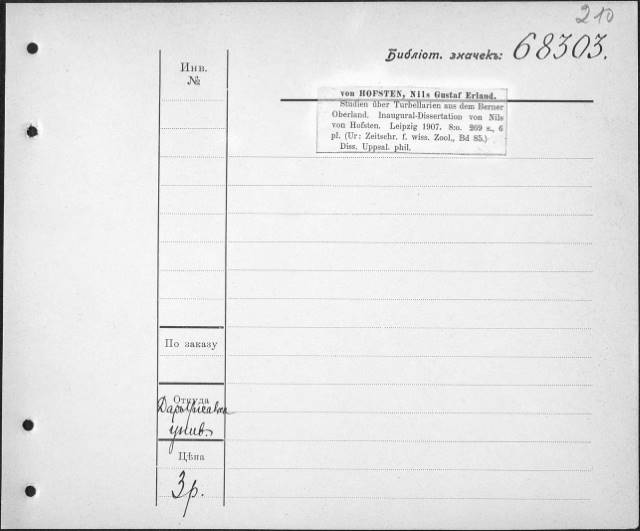 210
Библіот. значекъ: 68303.
Инв.
№
von HOFSTEN, Nils Gustaf Erland.
Studien über Turbellarien aus dem Berner
Oberland. Inaugural-Dissertation von Nils
von Hofsten. Leipzig 1907. 8:o. 269 s., 6
pl. (Ur: Zeitschr. f. wiss. Zool., Bd 85.)
Diss. Uppsal. phil.
По заказу
Откуда
Даръ Упсальск
унив.
Цѣна
3 р.